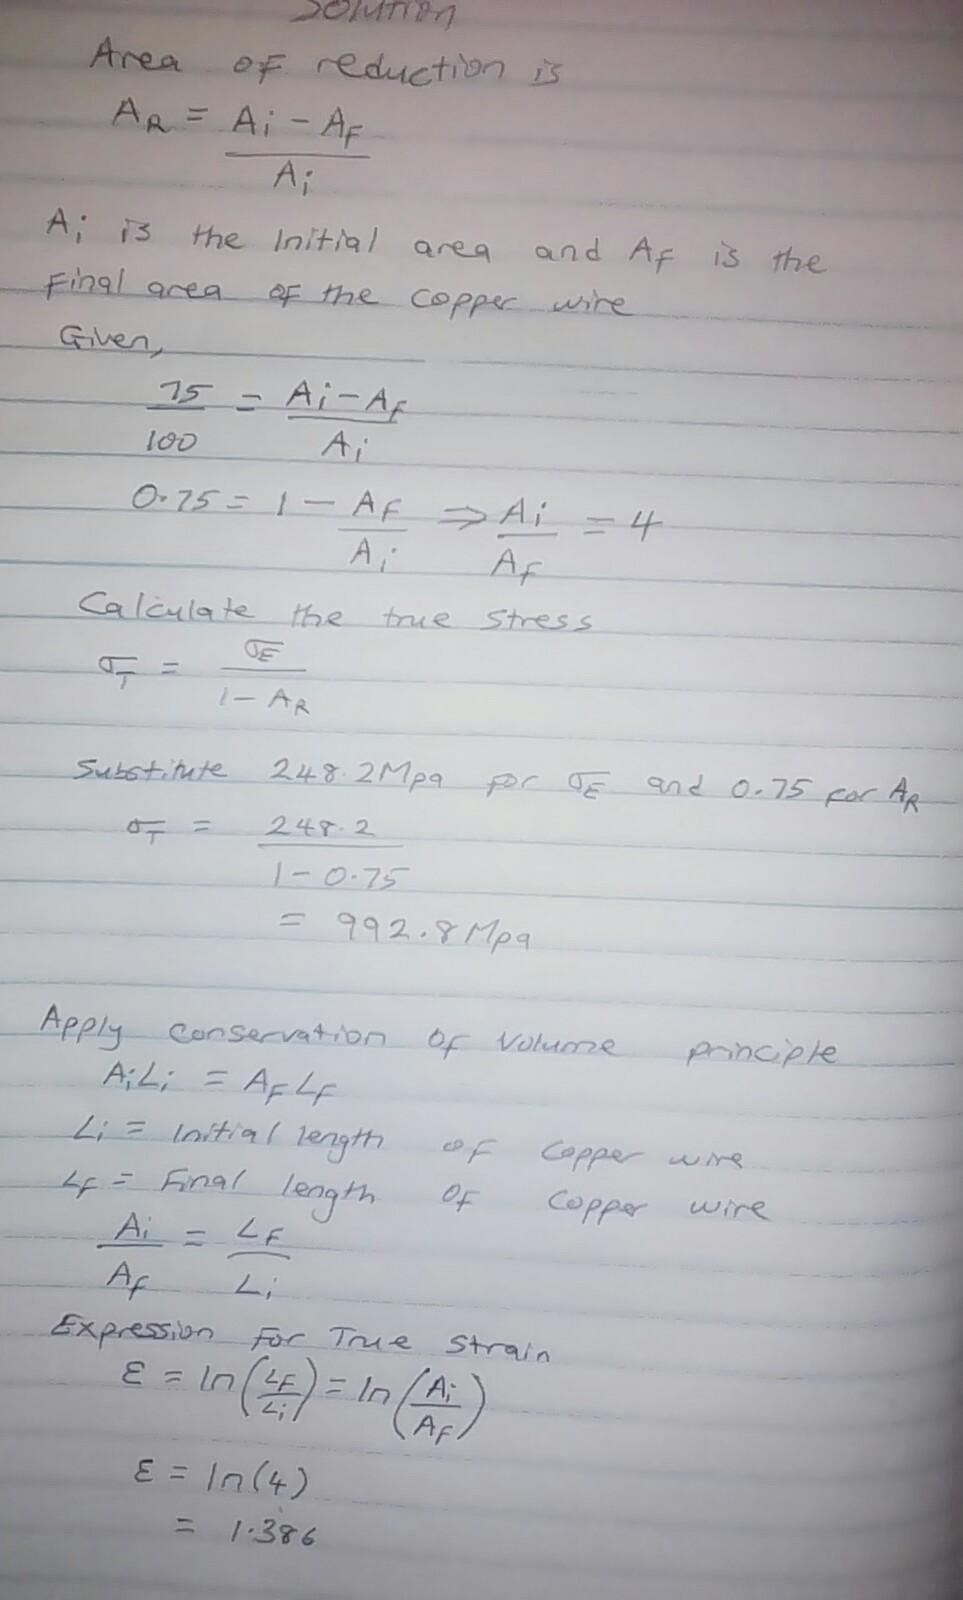 Solution
Area of reduction is
A_R = (A_i - A_F) / A_i
A_i is the Initial area and A_F is the
Final area of the copper wire
Given,
75/100 = (A_i - A_F) / A_i
0.75 = 1 - A_F/A_i ⇒ A_i/A_F = 4
Calculate the true stress
σ_T = σ_E / (1 - A_R)
Substitute 248.2Mpa for σ_E and 0.75 for A_R
σ_T = 248.2 / (1 - 0.75)
= 992.8Mpa
Apply conservation of volume principle
A_i L_i = A_F L_F
L_i = Initial length of copper wire
L_F = Final length of copper wire
A_i/A_F = L_F/L_i
Expression For True strain
ε = ln(L_F/L_i) = ln(A_i/A_F)
ε = ln(4)
= 1.386